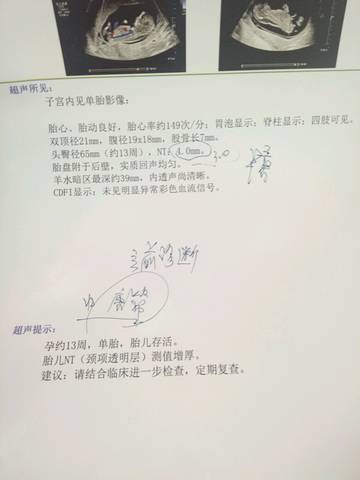 超声所见：
子宫内见单胎影像：
胎心、胎动良好，胎心率约149次/分；胃泡显示；脊柱显示；四肢可见。
双顶径21mm，腹径19x18mm，股骨长7mm。
头臀径65mm（约13周），NT：4.0mm。 3.0
胎盘附于后壁，实质回声均匀。
羊水暗区最深约39mm，内透声尚清晰。
CDFI显示：未见明显异常彩色血流信号。
产前诊断
超声提示：
孕约13周，单胎，胎儿存活。
胎儿NT（颈项透明层）测值增厚。
建议：请结合临床进一步检查，定期复查。